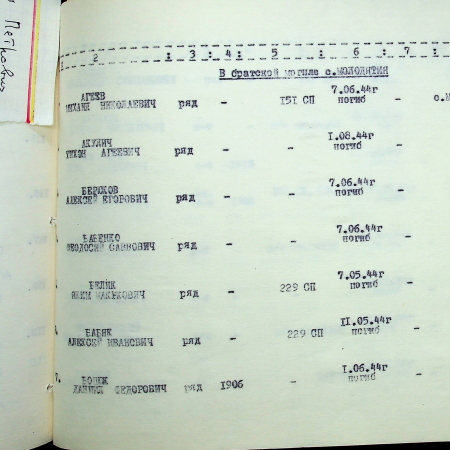 Петнович
: 2 : 3 : 4 : 5 : 6 : 7 :
В братской могиле с.МОЛОДЯТИЯ
АГЕЕВ
МИХАИЛ НИКОЛАЕВИЧ ряд - 151 СП 7.06.44г погиб - с.М
АКУЛИЧ
ТИХОН АГЕЕВИЧ ряд - - 1.08.44г погиб -
АЛЕКСЕЙ ЕГОРОВИЧ ряд - - 7.06.44г погиб -
БАБЕНКО
ФЕОДОСИЙ САВВОВИЧ ряд - - 7.06.44г погиб -
БЕЛИК
ряд - 229 СП 7.05.44г погиб -
АЛЕКСЕЙ ИВАНОВИЧ ряд - 229 СП 11.05.44г погиб -
7.
ДАНИИЛ ФЕДОРОВИЧ ряд 1906 - 1.06.44г погиб -